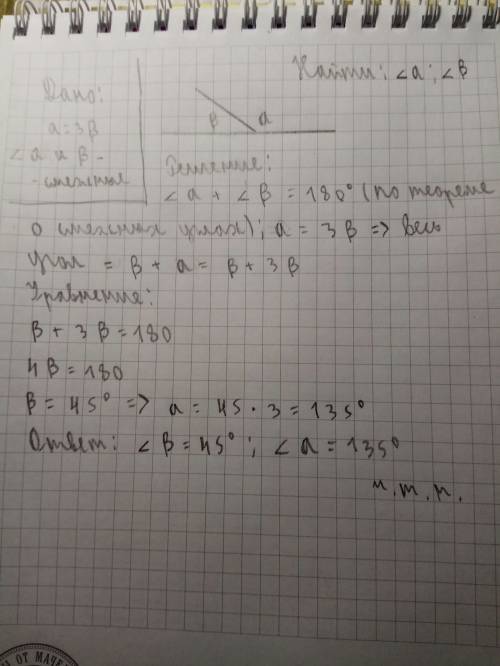 Найти: ∠a; ∠β
Дано:
a = 3β
∠a и β -
- смежные
β a
Решение:
∠a + ∠β = 180° (по теореме
о смежных углах); a = 3β => весь
угол = β + a = β + 3β
Уравнение:
β + 3β = 180
4β = 180
β = 45° => a = 45 · 3 = 135°
Ответ: ∠β = 45°; ∠a = 135°
ч.т.п.
ОТ МАЧЕ